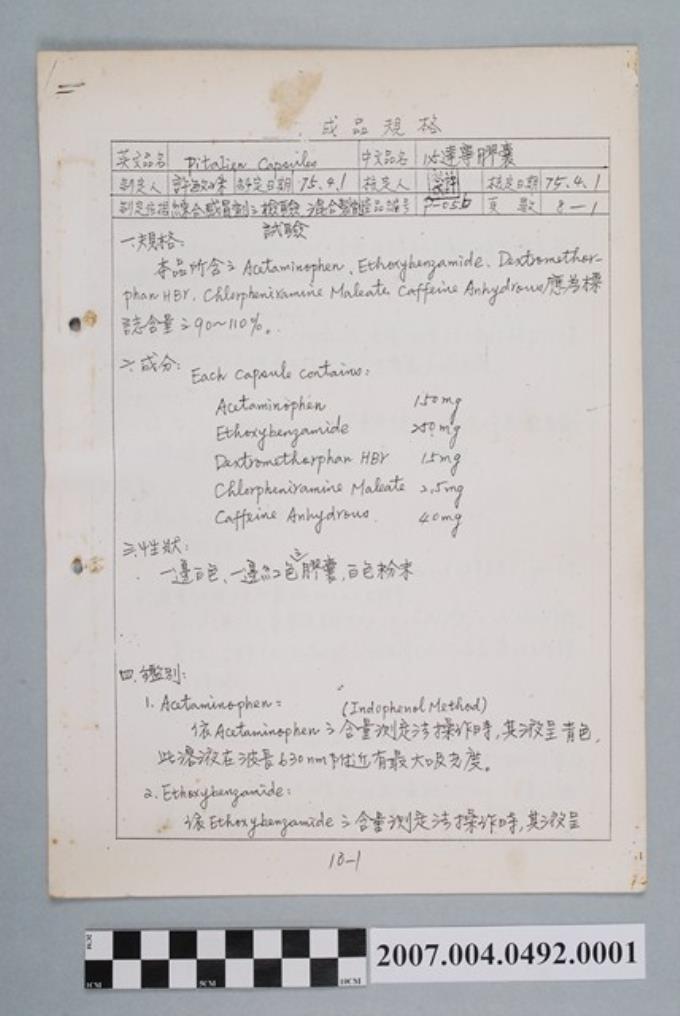 成品規格
英文品名 Pitalien Capsules 中文品名 必達寧膠囊
制定人 制定日期 75.4.1 核定人 核定日期 75.4.1
制定依據 綜合感冒劑之檢驗 P-056 頁數 8-1
試驗
一.規格:
本品所含之Acetaminophen、Ethoxybenzamide、Dextromethor-
phan HBr、Chlorpheniramine Maleate、Caffeine Anhydrous應為標
誌含量之90~110%。
二.成分: Each capsule contains:
Acetaminophen 150mg
Ethoxybenzamide 250mg
Dextromethorphan HBr 15mg
Chlorpheniramine Maleate 2.5mg
Caffeine Anhydrous 40mg
三.性狀:
一邊白色、一邊紅色之膠囊,白色粉末
四.鑑別:
1. Acetaminophen: (Indophenol Method)
依Acetaminophen之含量測定法操作時,其液呈青色,
此溶液在波長630nm附近有最大吸光度。
2. Ethoxybenzamide:
依Ethoxybenzamide之含量測定法操作時,其液呈
10-1
0CM
1CM 5CM 10CM
2007.004.0492.0001